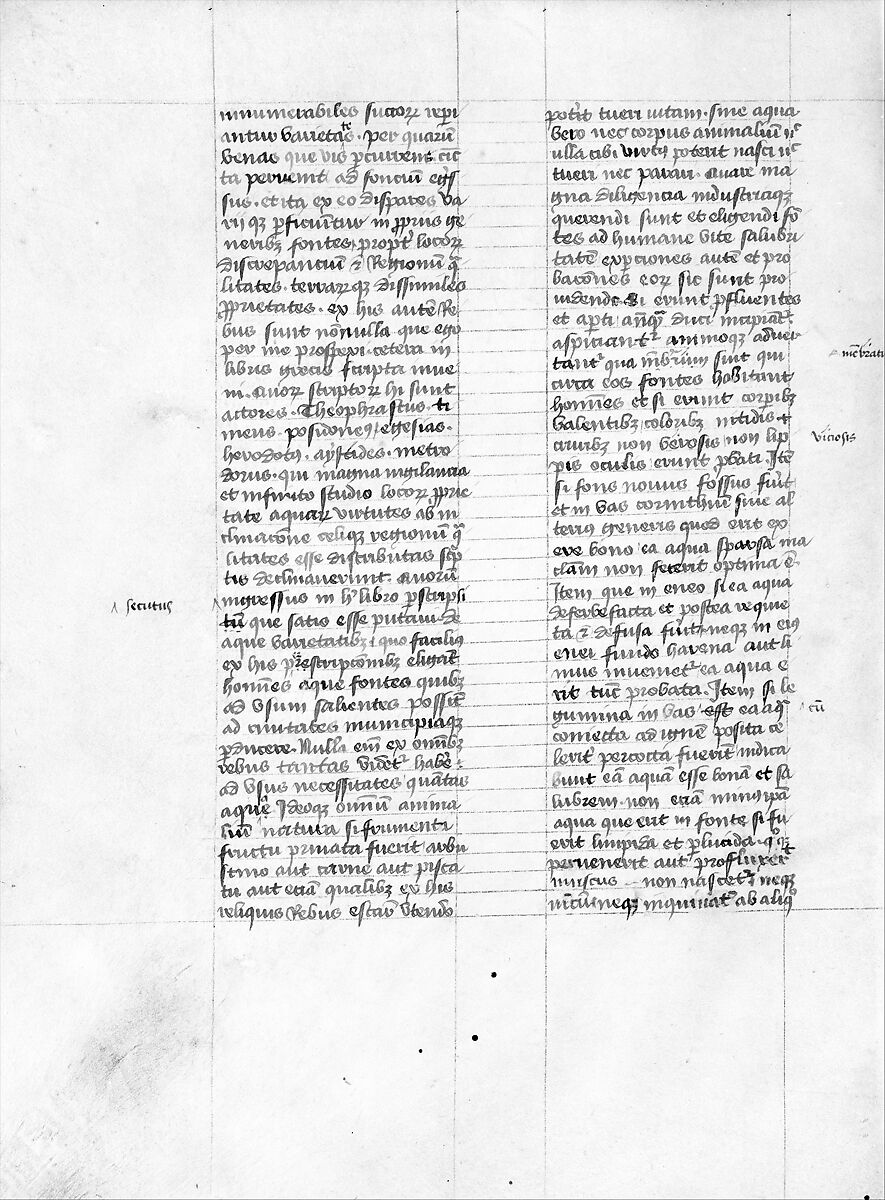 innumerabiles succorꝝ repi
antur varietates. per quarū
venas que vis ꝑcurrens tīc
ta pervenit ad fonciū egs̄
sus. et ita ex eo dispares va
rii qꝫ ꝑficiūtur in ꝓpriis ge
neribꝫ fontes propt̄ locorꝝ
discrepanciam et Regionū q̄
litates. terrarūqꝫ dissimiles
ꝓprietates. ex his autē Re
bus sunt nōnulla que ego
per me prospexi. cetera in
libris grecis scripta inve
ni. Quorꝝ scriptorꝝ hi sunt
actores. Theophrastus. ti
meus. posidoneꝰ egesias.
herodotꝰ. aristides. metro
dorus. qui magna vigilancia
et infinito studio locorꝝ ꝓprie
tate aquarꝝ virtutes ab in
clinacōne celiqꝫ regionū q̄
litates esse distributas scp̄
tis declinaverunt. Quorum
ingressus in h̄ libro ꝑscripsi
tū que satis esse putavi de
aque varietatibꝫ quo faciliꝰ
ex his prescriptionibꝫ eligāt
homīes aque fontes quibꝫ
ad vsum salientes possit̄
ad civitates municipiaqꝫ
ꝑducere. Nulla eni ex omībꝫ
rebus tantas videt̄ habē
ad vsus necessitates quātas
aqua Ideoqꝫ omniū anima
liū natura si frumenti
fructu privata fuerit arbu
stivo aut carne aut pisca
tu aut eciā qualibꝫ ex his
reliquis Rebus escarꝝ vtendo
∧ secutus
poterit tueri vitam. sine aqua
vero nec corpus animaliū nͨ
ulla cibi virtꝰ poterit nasci nͨ
tueri nec parari. Quare ma
gna diligencia industriaqꝫ
querendi sunt et eligendi fō
tes ad humane vite salubri
tatē exꝑciones autē et pro
bacōnes eorꝝ sic sunt pro
vidende. Si erunt ꝓfluentes
et apti anteqꝫ duci incipiant
aspiciant̄ animoqꝫ adver
tant̄ qua mēbriū sint qui
circa eos fontes habitant
homīes et si erunt corꝑibꝫ
valentibꝫ coloribꝫ nitidis
cruribꝫ non verosis non lip
pis oculis erunt ꝓbati. Itē
si fons novus fossus fuīt
et in vas corinthiū sive al
terius generis quod erit ex
ere bono ea aqua sparsa ma
clam non fecerit optima ē.
Item que in eneo si ea aqua
defervefacta et postea requie
ta et defusa fuīt neqꝫ in eiꝰ
enei fundo harena aut li
mus inveniet̄ ea aqua e
rit tūc probata. Item si le
gumina in vas est ea aq̄
coniecta ad ignē posita ce
leriter percocta fuerint indica
bunt eā aquā esse bonā et sa
lubrem. non eciā minꝰ ip̄a
aqua que erit in fonte si fu
erit limpida et ꝑlucida. quoqꝫ
pervenerit aut profluxerit
muscus non nascet̄ neqꝫ
iūcū neqꝫ inquinat̄ ab aliqꝰ
mēbrati
viciosis
cū